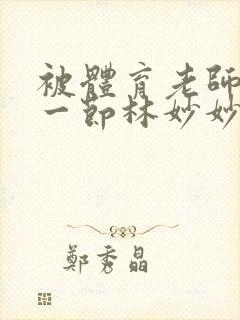 被體育老師
一節林妙妙
鄭秀晶